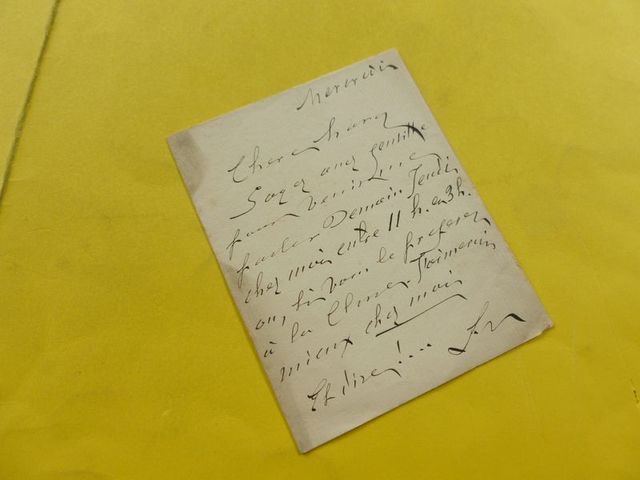 Mercredi
Chere
Soyez assez gentille
pour venir me
parler Demain Jeudi
chez moi entre 11 h. et 3 h.
ou si vous le préferez
à la J'aimerais
mieux chez moi